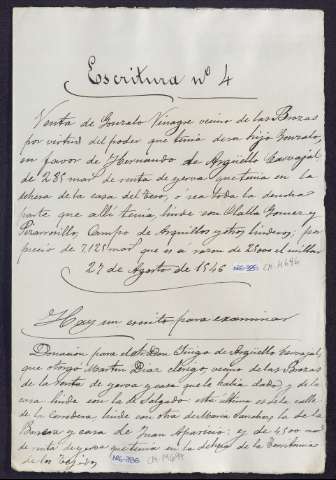 Escritura nº 4
Venta de Gonzalo Vinagre vecino de las Brozas
por virtud del poder que tenia de su hijo Gonzalo,
en favor de Hernando de Argüello Carvajal
de 285 mar de renta de yerva que tenia en la
dehesa de la casa del , ó sea toda la demas
parte que alli tenia linde con Olalla Gomez y
Campo de Arguillos y otros linderos; por
precio de 7.125 mar que es á razon de 25000 el millar
27 de Agosto de 1546
CM 4646
Hay un escrito para examinar
Donacion para el dho Don Iñigo de Argüello Carvajal,
que otorgó Martin Diaz clerigo, vecino de las Brozas
de la renta de yerva y casa que le habia dado y de la
casa linde con la de Salgado: esta ultima es de la calle
de la Corredera linde con otra de Maria Sanchez la de la
y casa de Juan Aparicio; y de 4500 mr
de renta de yerva que tenia en la dehesa de la
de los